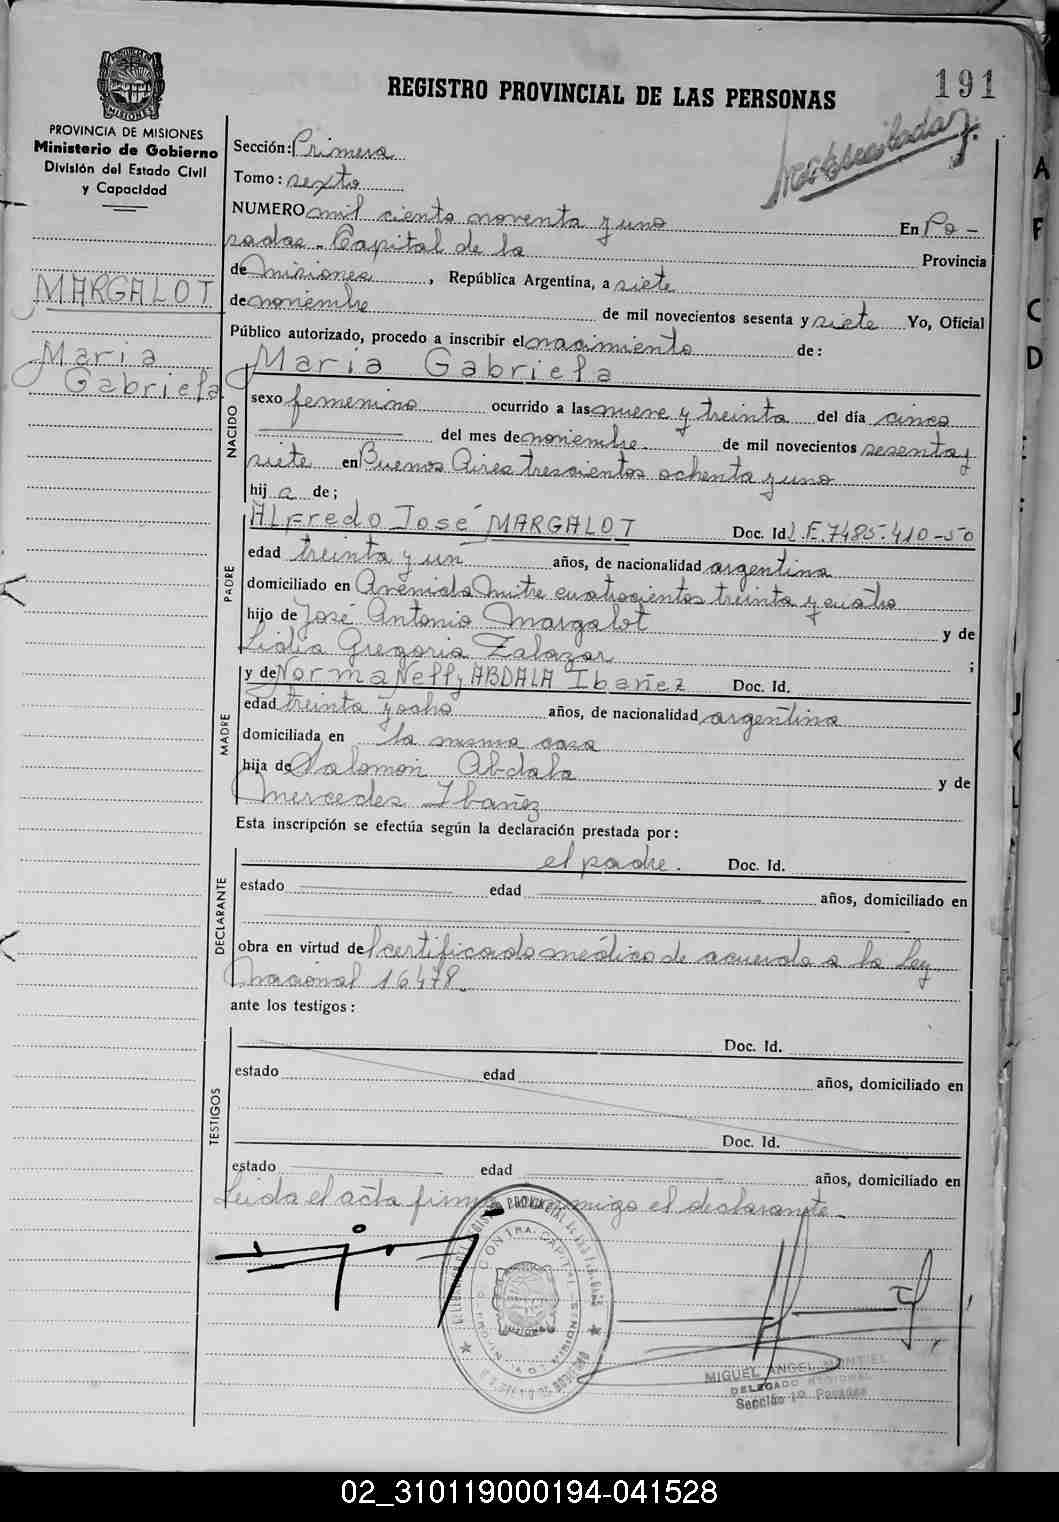 191
REGISTRO PROVINCIAL DE LAS PERSONAS
PROVINCIA DE MISIONES
Ministerio de Gobierno
División del Estado Civil
y Capacidad
MARGALOT
Maria
Gabriela
Sección: Primera
Tomo: sexto
NUMERO mil ciento noventa y uno En Po-
sadas - Capital de la Provincia
de Misiones, República Argentina, a siete
de noviembre de mil novecientos sesenta y siete Yo, Oficial
Público autorizado, procedo a inscribir el nacimiento de:
Maria Gabriela
NACIDO
sexo femenino ocurrido a las nueve y treinta del día cinco
del mes de noviembre de mil novecientos sesenta y
siete en Buenos Aires trescientos ochenta y uno
hij a de;
PADRE
Alfredo José MARGALOT Doc. Id. L.E. 7485.410-50
edad treinta y un años, de nacionalidad argentina
domiciliado en Avenida Mitre cuatrocientos treinta y cuatro
hijo de José Antonio Margalot y de
Lidia Gregoria Zalazar ;
MADRE
y de Norma Nelly ABDALA Ibañez Doc. Id.
edad treinta y ocho años, de nacionalidad argentina
domiciliada en la misma casa
hija de Salomón Abdala y de
Mercedes Ibañez
Esta inscripción se efectúa según la declaración prestada por:
DECLARANTE
el padre. Doc. Id.
estado edad años, domiciliado en
obra en virtud del certificado médico de acuerdo a la Ley
Nacional 16478.
ante los testigos:
TESTIGOS
Doc. Id.
estado edad años, domiciliado en
Doc. Id.
estado edad años, domiciliado en
Leida el acta firma conmigo el declarante.
MIGUEL ANGEL MONTIEL
DELEGADO REGIONAL
Sección 1º Posadas
A
F
C
D
02_310119000194-041528